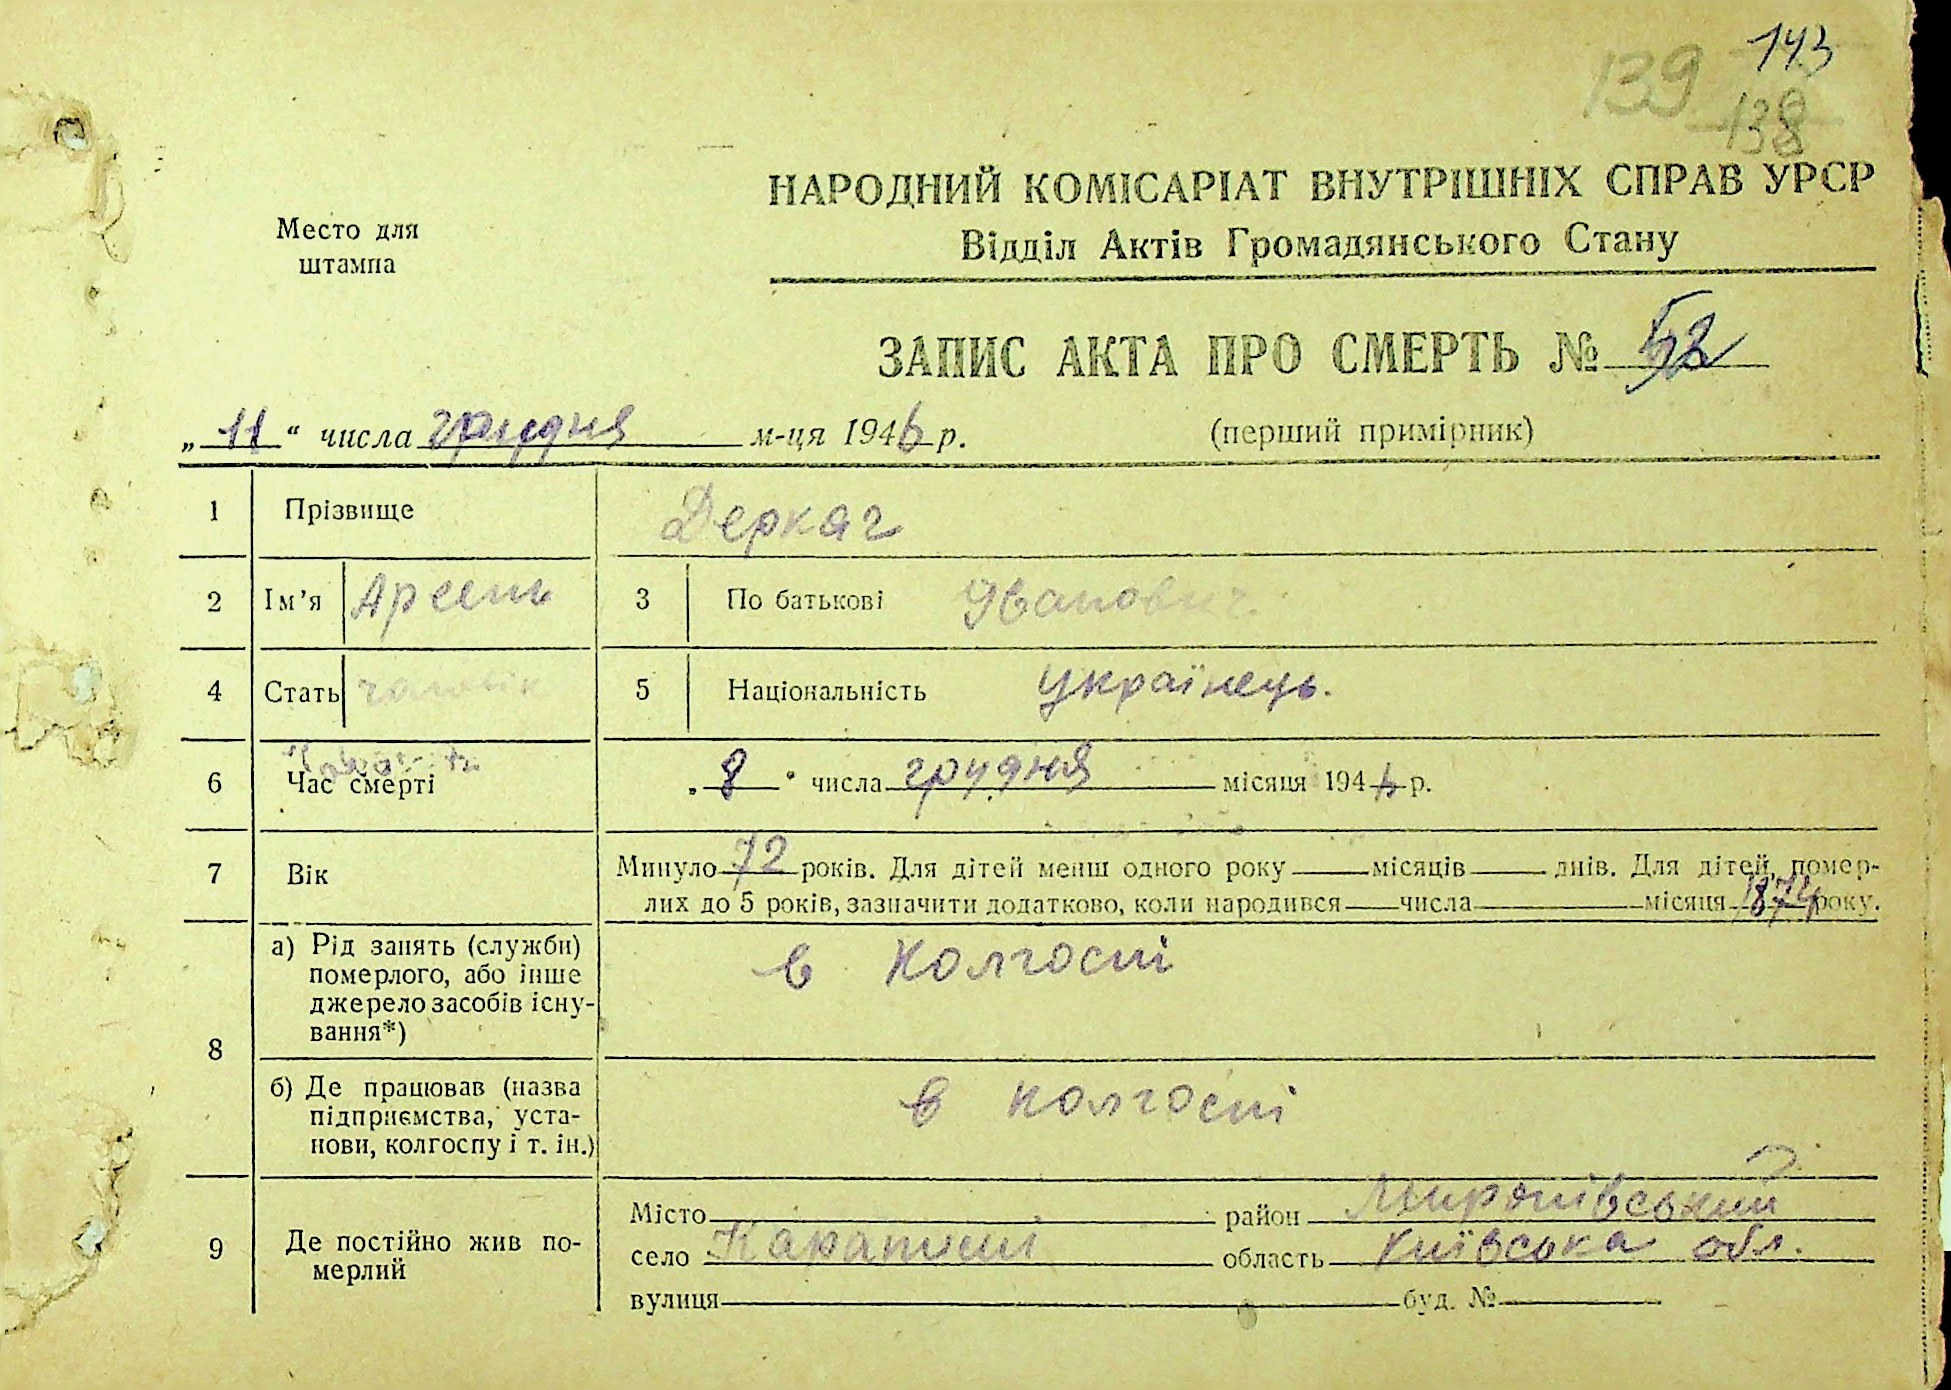 143
139
138
Место для
штампа
НАРОДНИЙ КОМІСАРІАТ ВНУТРІШНІХ СПРАВ УРСР
Відділ Актів Громадянського Стану
ЗАПИС АКТА ПРО СМЕРТЬ № 52
„ 11 “ числа грудня м-ця 1946 р.
(перший примірник)
1 Прізвище Деркач
2 Ім’я Арсень 3 По батькові Иванович
4 Стать чоловік 5 Національність українець.
6 Час смерті „ 8 “ числа грудня місяця 1946 р.
7 Вік Минуло 72 років. Для дітей менш одного року — місяців — днів. Для дітей, помер-
лих до 5 років, зазначити додатково, коли народився — числа — місяця 1874 року.
8 а) Рід занять (служби)
померлого, або інше
джерело засобів існу-
вання*)
в колгоспі
б) Де працював (назва
підприємства, уста-
нови, колгоспу і т. ін.)
в колгоспі
9 Де постійно жив по-
мерлий
Місто район Миронівський
село Карапиші область Київська обл.
вулиця буд. №